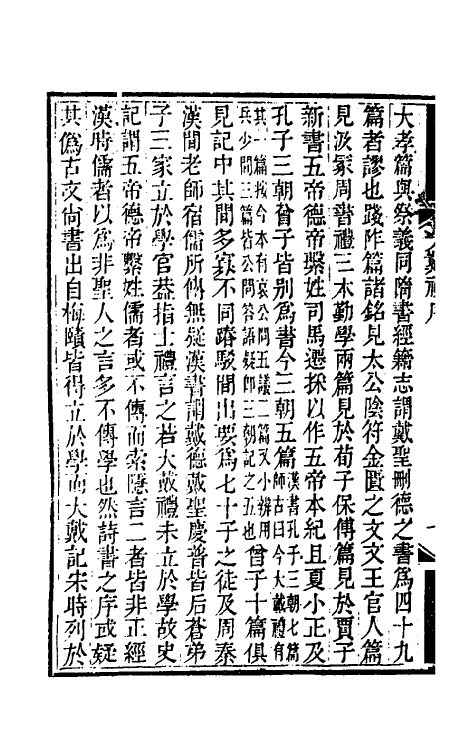 大孝篇與祭義同隋書經籍志謂戴聖刪德之書爲四十九
篇者謬也踐阼篇諸銘見太公陰符金匱之文文王官人篇
見汲冢周書禮三本勤學兩篇見於荀子保傅篇見於賈子
新書五帝德帝繫姓司馬遷採以作五帝本紀且夏小正及
孔子三朝曾子皆別爲書今三朝五篇漢書孔子三朝七篇師古曰今大戴禮有
其一篇按今本有哀公問五議二篇又小辨用兵少間三篇皆公問答語疑卽三朝記之五也曾子十篇俱
見記中其間多寡不同踳駁間出要爲七十子之徒及周秦
漢間老師宿儒所傳無疑漢書謂戴德戴聖慶普皆后蒼弟
子三家立於學官葢指士禮言之若大戴禮未立於學故史
記謂五帝德帝繫姓儒者或不傳而索隱言二者皆非正經
漢時儒者以爲非聖人之言多不傳學也然詩書之序或疑
其僞古文尙書出自梅賾皆得立於學而大戴記宋時列於